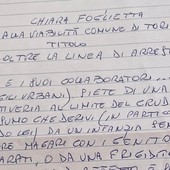 CHIARA FOGLIETTA
ALLA VIABILITÀ COMUNE DI TORI
TITOLO
OLTRE LA LINEA DI ARRES
E I SUOI COLLABORATORI...
VIGILI URBANI), SIETE DI UNA
TIVERIA AL LIMITE DEL CRUD
SUNO CHE DERIVI (IN PARTICO
DO LEI) DA UN'INFANZIA SEN
ERE MAGARI CON I GENITO
ARATI, O DA UNA FRIGIDIT